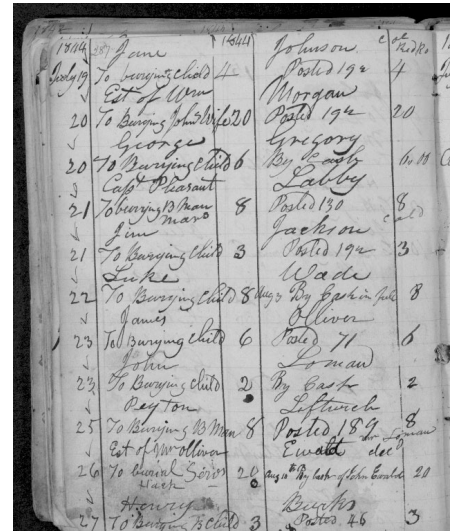 1844 287 Jane 1844 Johnson Col Red Ro
July 19 To burying child 4 Posted 192 4
Est of Wm Morgan
20 To Burying Johns Wife 20 Posted 192 20
George Gregory
20 To Burying Child 6 By Cash 6.00
Capt Pleasant Labby
21 To burying B Man 8 Posted 130 8
Jim Jackson
21 To Burying Child 3 Posted 192 3
Luke Wade
22 To Burying Child 8 Aug 3 By Cash in full 8
James Olliver
23 To Burying Child 6 Posted 71 6
John Loman
23 To Burying child 2 By Cash 2
Peyton Leftwich
25 To Burying B Man 8 Posted 189 8
Est of Mr Olliver Ewald decd
26 To burial 20 Aug 10 By cash of John Ewald 20
Henry Burks
27 To Burying B child 3 Posted 46 3